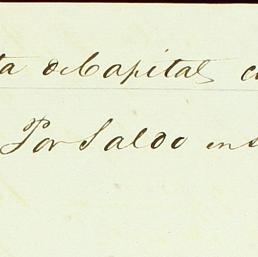 ta de Capital c
Por Saldo en s